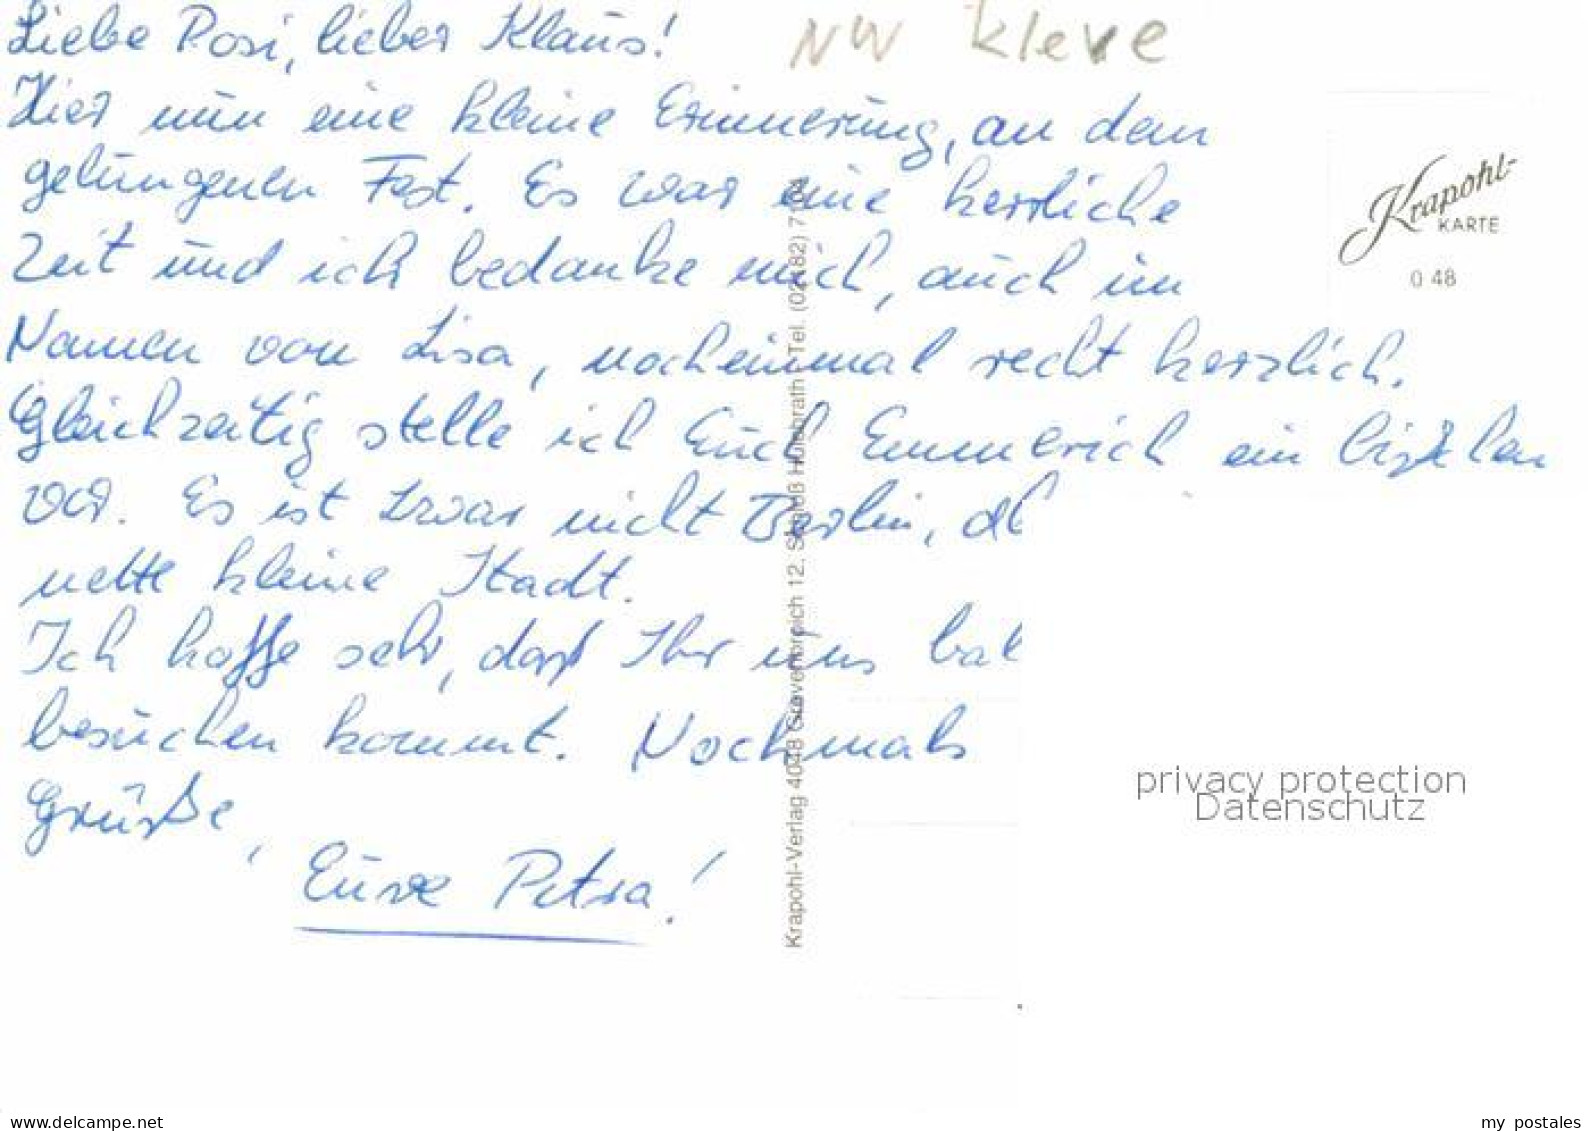 Liebe Rosi, lieber Klaus!
NW Kleve
Hier nun eine kleine Erinnerung, an dem
gelungenen Fest. Es war eine herrliche
Zeit und ich bedanke mich, auch im
Namen von Lisa, nocheinmal recht herzlich.
Gleichzeitig stelle ich Euch Emmerich ein
vor. Es ist zwar nicht Berlin,
nette kleine Stadt.
Ich hoffe sehr, daß Ihr uns bal
besuchen kommt. Nochmals
Grüße,
Eure Petra!
Krapohl-
KARTE
0 48
Krapohl-Verlag 4048 Grevenbroich 12, Schloß Hülchrath Tel.
privacy protection
Datenschutz
www.delcampe.net
my_postales